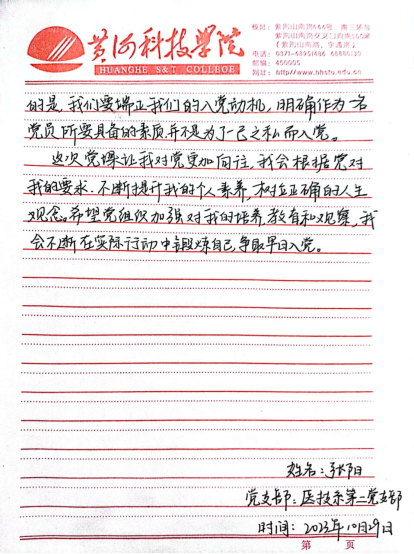 黄河科技学院
HUANGHE S&T COLLEGE
校址：紫荆山南路666号，南三环与
紫荆山南路交叉口向南100米
（紫荆山南路、宇通道）
邮编：450005
网址：http://www.hhstu.edu.cn
的是，我们要端正我们的入党动机，明确作为一名
党员所要具备的素质并不是为了一己之私而入党。
这次党课让我对党更加向往，我会根据党对
我的要求.不断提升我的个人素养，树立正确的人生
观念。希望党组织加强对我的培养教育和观察，我
会不断在实际行动中锻炼自己，争取早日入党。
姓名：张阳
党支部：医技系第二党支部
时间：2023年10月29日
第 页